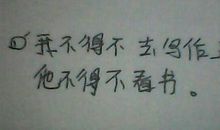 ① 我不得不去写作
他不得不看书。